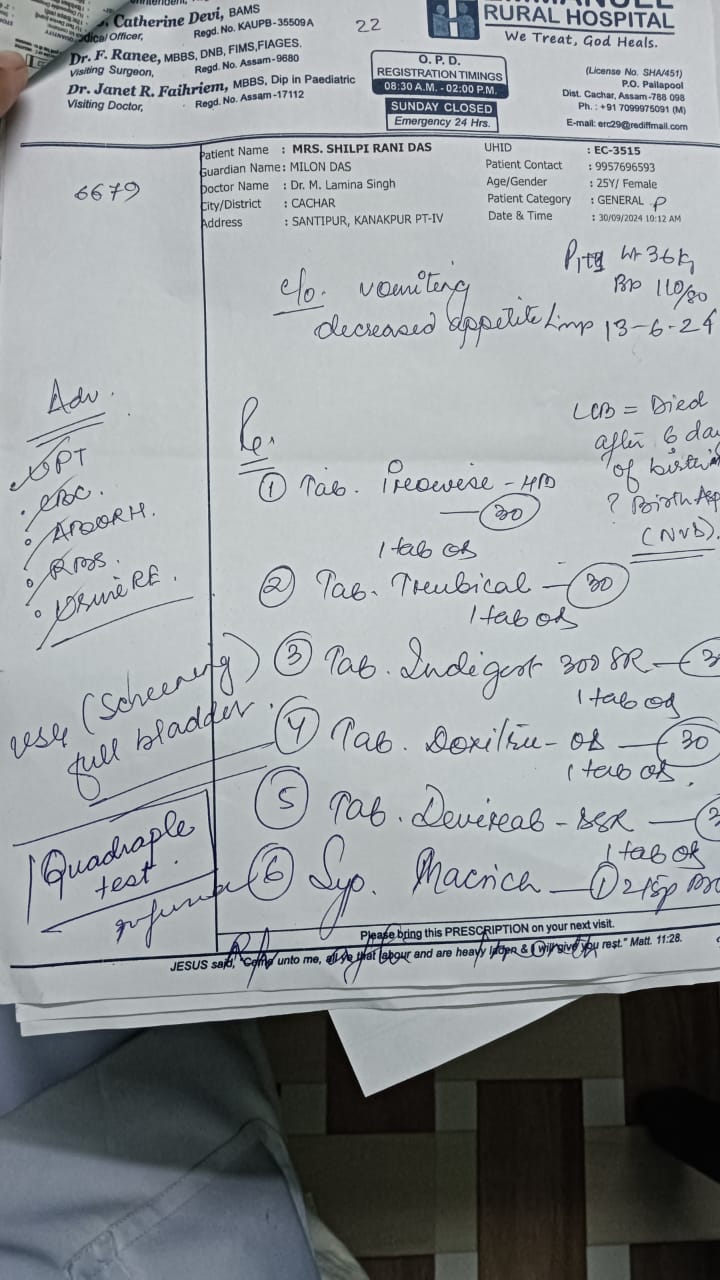 Catherine Devi, BAMS
Medical Officer, Regd. No. KAUPB-35509A
Dr. F. Ranee, MBBS, DNB, FIMS, FIAGES.
Visiting Surgeon, Regd. No. Assam-9680
Dr. Janet R. Faihriem, MBBS, Dip in Paediatric
Visiting Doctor, Regd. No. Assam-17112
22
RURAL HOSPITAL
We Treat, God Heals.
O. P. D.
REGISTRATION TIMINGS
08:30 A.M. - 02:00 P.M.
SUNDAY CLOSED
Emergency 24 Hrs.
(License No. SHA/451)
P.O. Pailapool
Dist. Cachar, Assam-788 098
Ph. : +91 7099975091 (M)
E-mail: erc29@rediffmail.com
6679
Patient Name : MRS. SHILPI RANI DAS
Guardian Name : MILON DAS
Doctor Name : Dr. M. Lamina Singh
City/District : CACHAR
Address : SANTIPUR, KANAKPUR PT-IV
UHID : EC-3515
Patient Contact : 9957696593
Age/Gender : 25Y/ Female
Patient Category : GENERAL P
Date & Time : 30/09/2024 10:12 AM
Wt 36kg
BP 110/80
c/o. vomiting
decreased appetite Lmp 13-6-24
LCB = Died
after 6 day
of birth
? Birth Asp
(NVD).
Adv.
UPT
CBC.
ABORH.
RBS.
Urine RE.
USG (Screening)
full bladder.
Quadraple
test.
Rx.
① Tab. - HD
30
1 tab od
② Tab. - 30
1 tab od
③ Tab. Indigest 300 SR - 3
1 tab od
④ Tab. - 30
1 tab od.
⑤ Tab. - SSR -
1 tab od
⑥ Syp. Macrich - ① 2tsp
Please bring this PRESCRIPTION on your next visit.
JESUS said, "Come unto me, all ye that labour and are heavy laden & I will give you rest." Matt. 11:28.